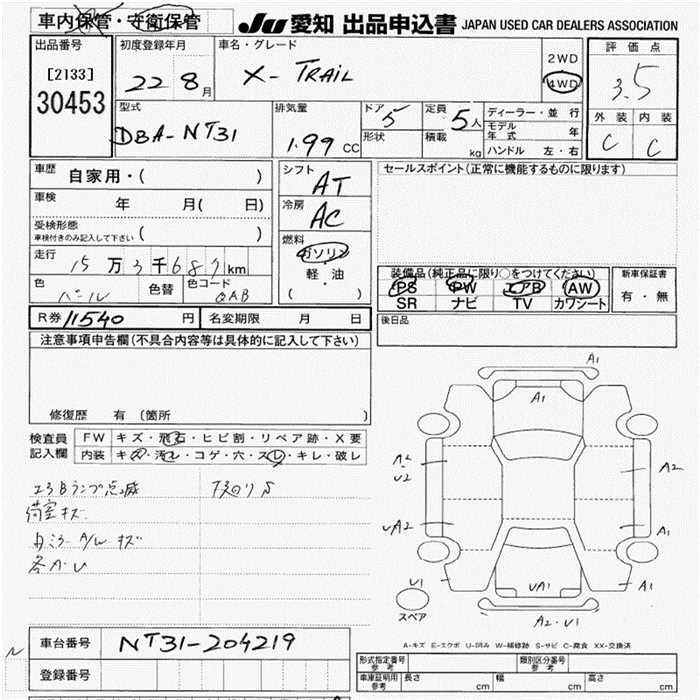 車内保管・守衛保管
JU 愛知 出品申込書 JAPAN USED CAR DEALERS ASSOCIATION
出品番号
[2133]
30453
初度登録年月
22 8月
車名・グレード
X-TRAIL
2WD
4WD
評価点
3.5
外装 内装
C C
型式
DBA-NT31
排気量
1.99 CC
ドア 5
形状
定員 5人
積載 kg
ディーラー・並行
モデル年式 年
ハンドル 左・右
車歴 自家用・( )
車検 年 月( 日)
受検形態
車検付きのみ記入して下さい ( )
走行
15万3千687km
色 パール 色替 色コード QAB
シフト
AT
冷房
AC
燃料
ガソリン
軽・油
( ・ )
セールスポイント(正常に機能するものに限ります)
装備品(純正品に限り○をつけてください)
PS PW エアB AW
SR ナビ TV カワシート
新車保証書
有・無
R券 11540円 名変期限 月 日
後日品
注意事項申告欄(不具合内容等は具体的に記入して下さい)
修復歴 有(箇所 )
検査員記入欄
FW キズ・飛石・ヒビ割・リペア跡・X要
内装 キズ・汚レ・コゲ・穴・スレ・キレ・破レ
エアBランプ点滅
荷室キズ
A/Wキズ
A1
A1
A2
U2
A2
UA2
A1
U1
UA1
A1
A2・U1
スペア
A-キズ E-エクボ U-凹み W-補修跡 S-サビ C-腐食 XX-交換済
車台番号 NT31-204219
登録番号
形式指定番号 参考
類別区分番号 参考
車庫証明用 参考 長さ cm 幅 cm 高さ cm